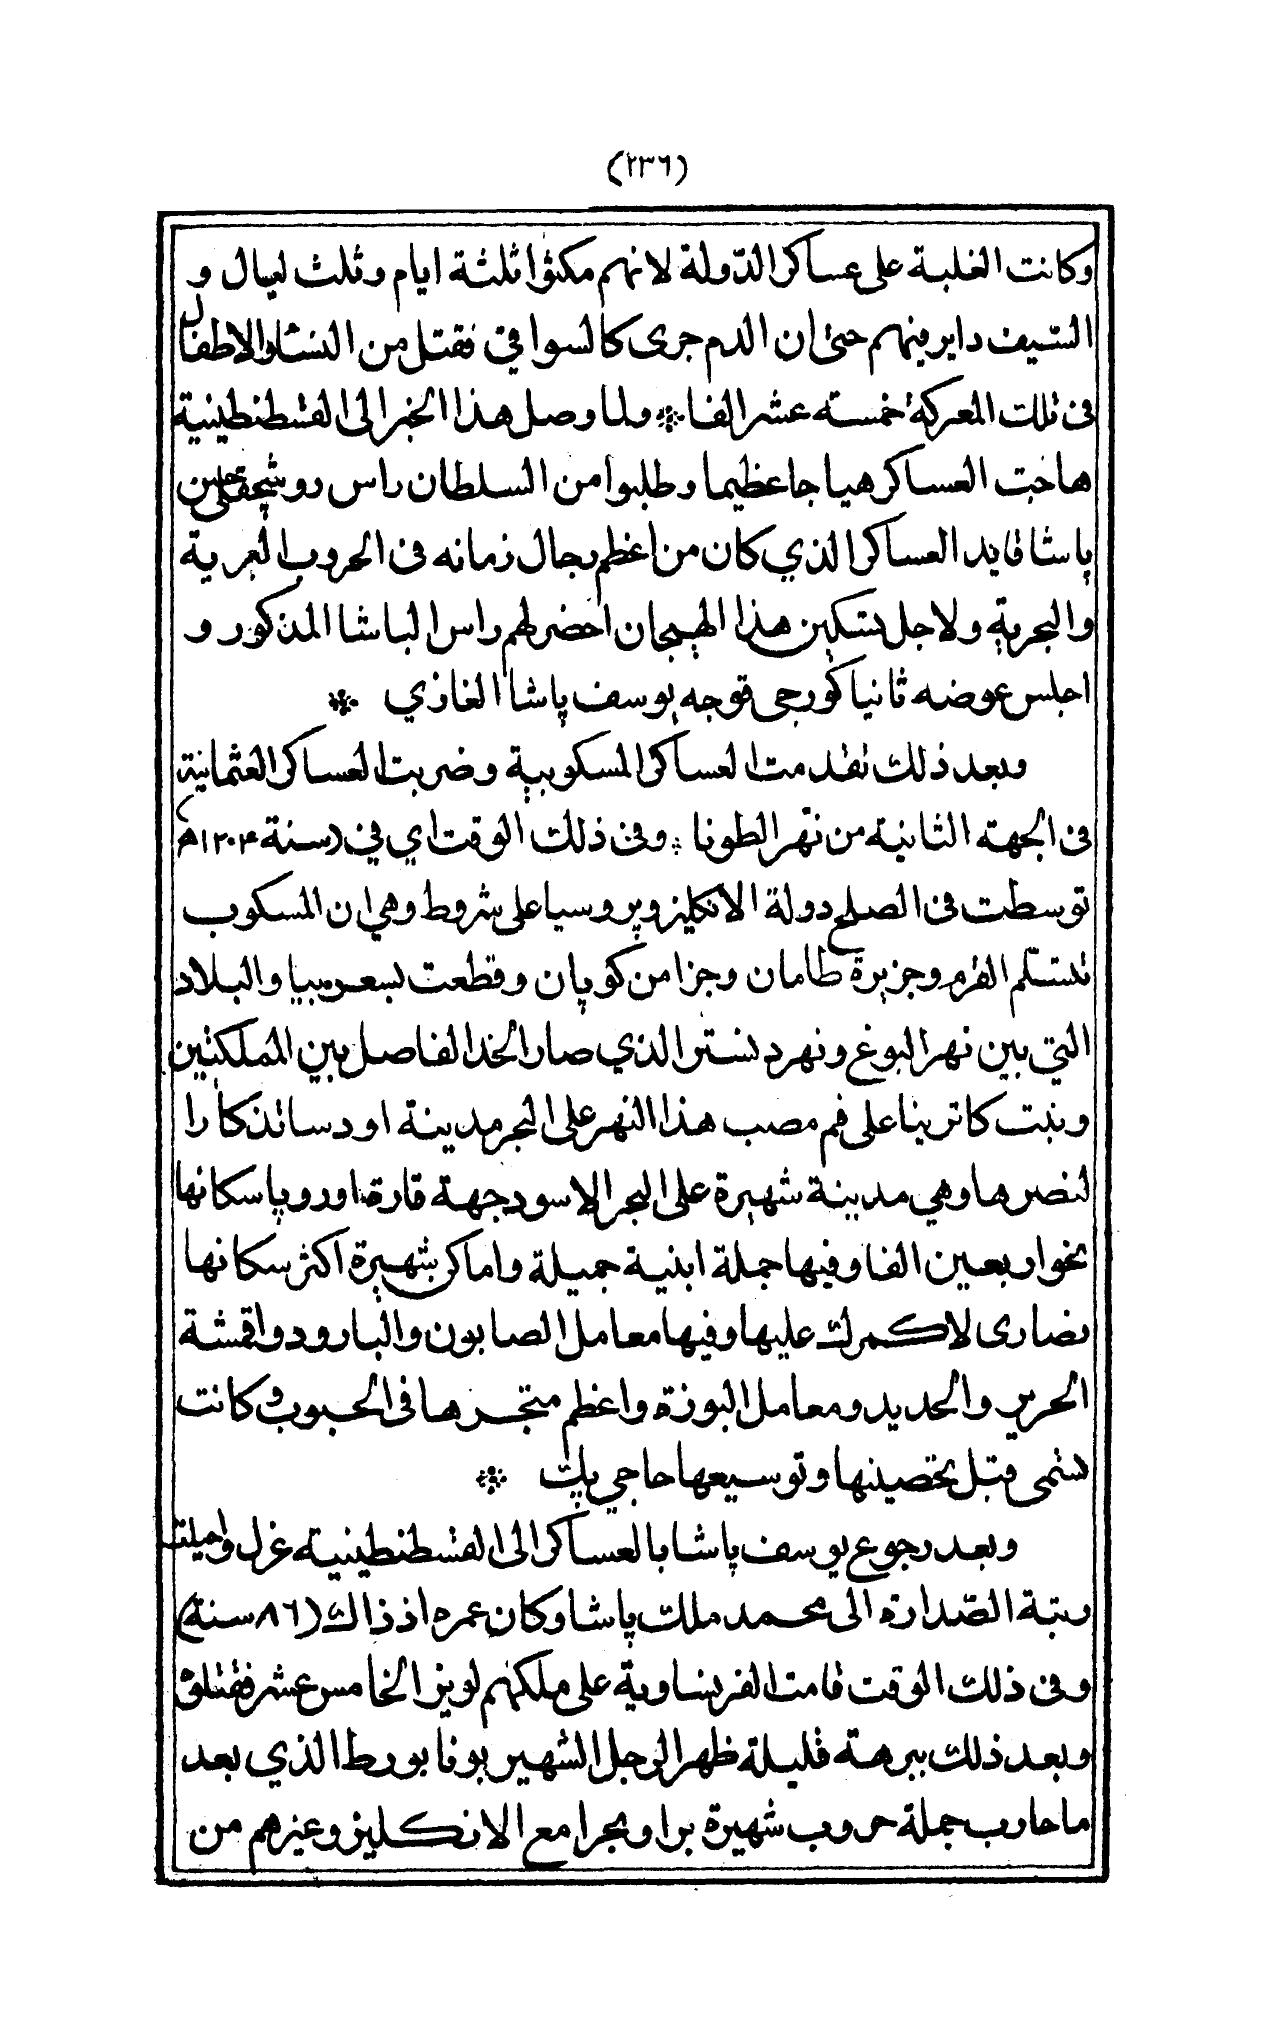 (٢٣٦)
وكانت الغلبة على عساكر الدّولة لانهم مكثوا ثلثة ايام وثلث ليال و
السّيف داير فيهم حتى ان الدم جرى كالسواقي فقتل من النسا والاطفال
فى تلك المعركة خمسته عشر الفا * ولما وصل هذا الخبر الى القسطنطينية
هاجت العساكر هياجا عظيما وطلبوا من السلطان راس روشجقلى حسن
پاشا قايد العساكر الذي كان من اعظم رجال زمانه فى الحروب البرية
والبحرية ولاجل تسكين هذا الهيجان احضر لهم راس الباشا المذكور و
اجلس عوضه ثانيا كورجى قوجه يوسف پاشا الغازي *
وبعد ذلك تقدمت العساكر المسكوبية وضربت العساكر العثمانية
فى الجهة الثانية من نهر الطونا * وفى ذلك الوقت اي في (سنة ١٢٠٤ ه)
توسطت فى الصلح دولة الانكليز وپروسيا على شروط وهي ان المسكوب
تستلم القرم وجزيرة طامان وجزا من كوپان وقطعت بسعربيا والبلاد
التي بين نهر البوغ ونهر دنستر الذي صار الحد الفاصل بين المملكتين
وبنت كاترينا على فم مصب هذا النهر على البحر مدينة اودسا تذكارا
لنصرها وهي مدينة شهيرة على البحر الاسود جهة قارة اوروپا سكانها
نحو اربعين الفا وفيها جملة ابنية جميلة واماكن شهيرة اكثر سكانها
نصارى لا كمرك عليها وفيها معامل الصابون والبارود واقمشة
الحرير والحديد ومعامل البوزة واعظم متجرها في الحبوب وكانت
تسمى قبل تحصينها وتوسيعها حاجي بك *
وبعد رجوع يوسف پاشا بالعساكر الى القسطنطينية عزل واحيلت
رتبة الصّدارة الى محمد ملك پاشا وكان عمره اذ ذاك (٨٦ سنة)
وفى ذلك الوقت قامت الفرنساوية على ملكهم لويز الخامس عشر فقتلوه
وبعد ذلك ببرهة قليلة ظهر الرجل الشهير بونا بورط الذي بعد
ما حارب جملة حروب شهيرة برا وبحرا مع الانكليز وغيرهم من